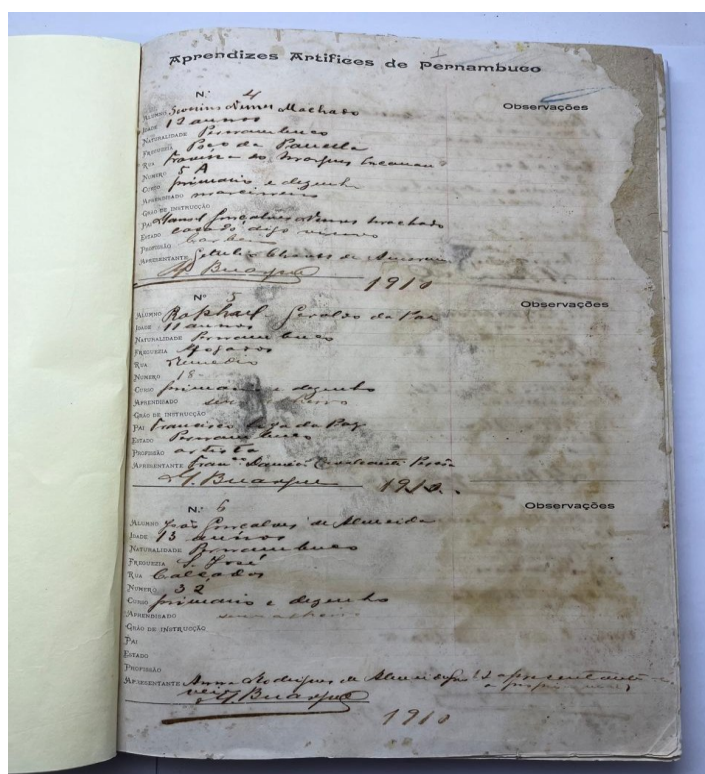 Aprendizes Artifices de Pernambuco
N.º 4 Observações
Alumno Nunes Machado
Idade 12 annos
Naturalidade Pernambuco
Freguezia Poço da Panella
Rua Travessa do
Numero 5 A
Curso primario e dezenho
Aprendisado marcineiro
Gráo de instrucção
Pai Manoel Gonçalves Nunes Machado
Estado casado digo viuvo
Profissão barbeiro
Apresentante Getulio de Amorim
Buarque
1910
Nº 5 Observações
Alumno Raphael Geraldo da Paz
Idade 11 annos
Naturalidade Pernambuco
Freguezia Afogados
Rua Remedio
Numero 18
Curso primario e dezenho
Aprendisado
Gráo de instrucção
Pai Francisco da Paz
Estado Pernambuco
Profissão artista
Apresentante Cavalcante
Buarque 1910.
N.º 6 Observações
Alumno João Gonçalves de Almeida
Idade 13 annos
Naturalidade Pernambuco
Freguezia S. José
Rua Calçados
Numero 32
Curso primario e dezenho
Aprendisado
Gráo de instrucção
Pai
Estado
Profissão
Apresentante Anna Rodrigues de Almeida apresentante
Buarque
1910